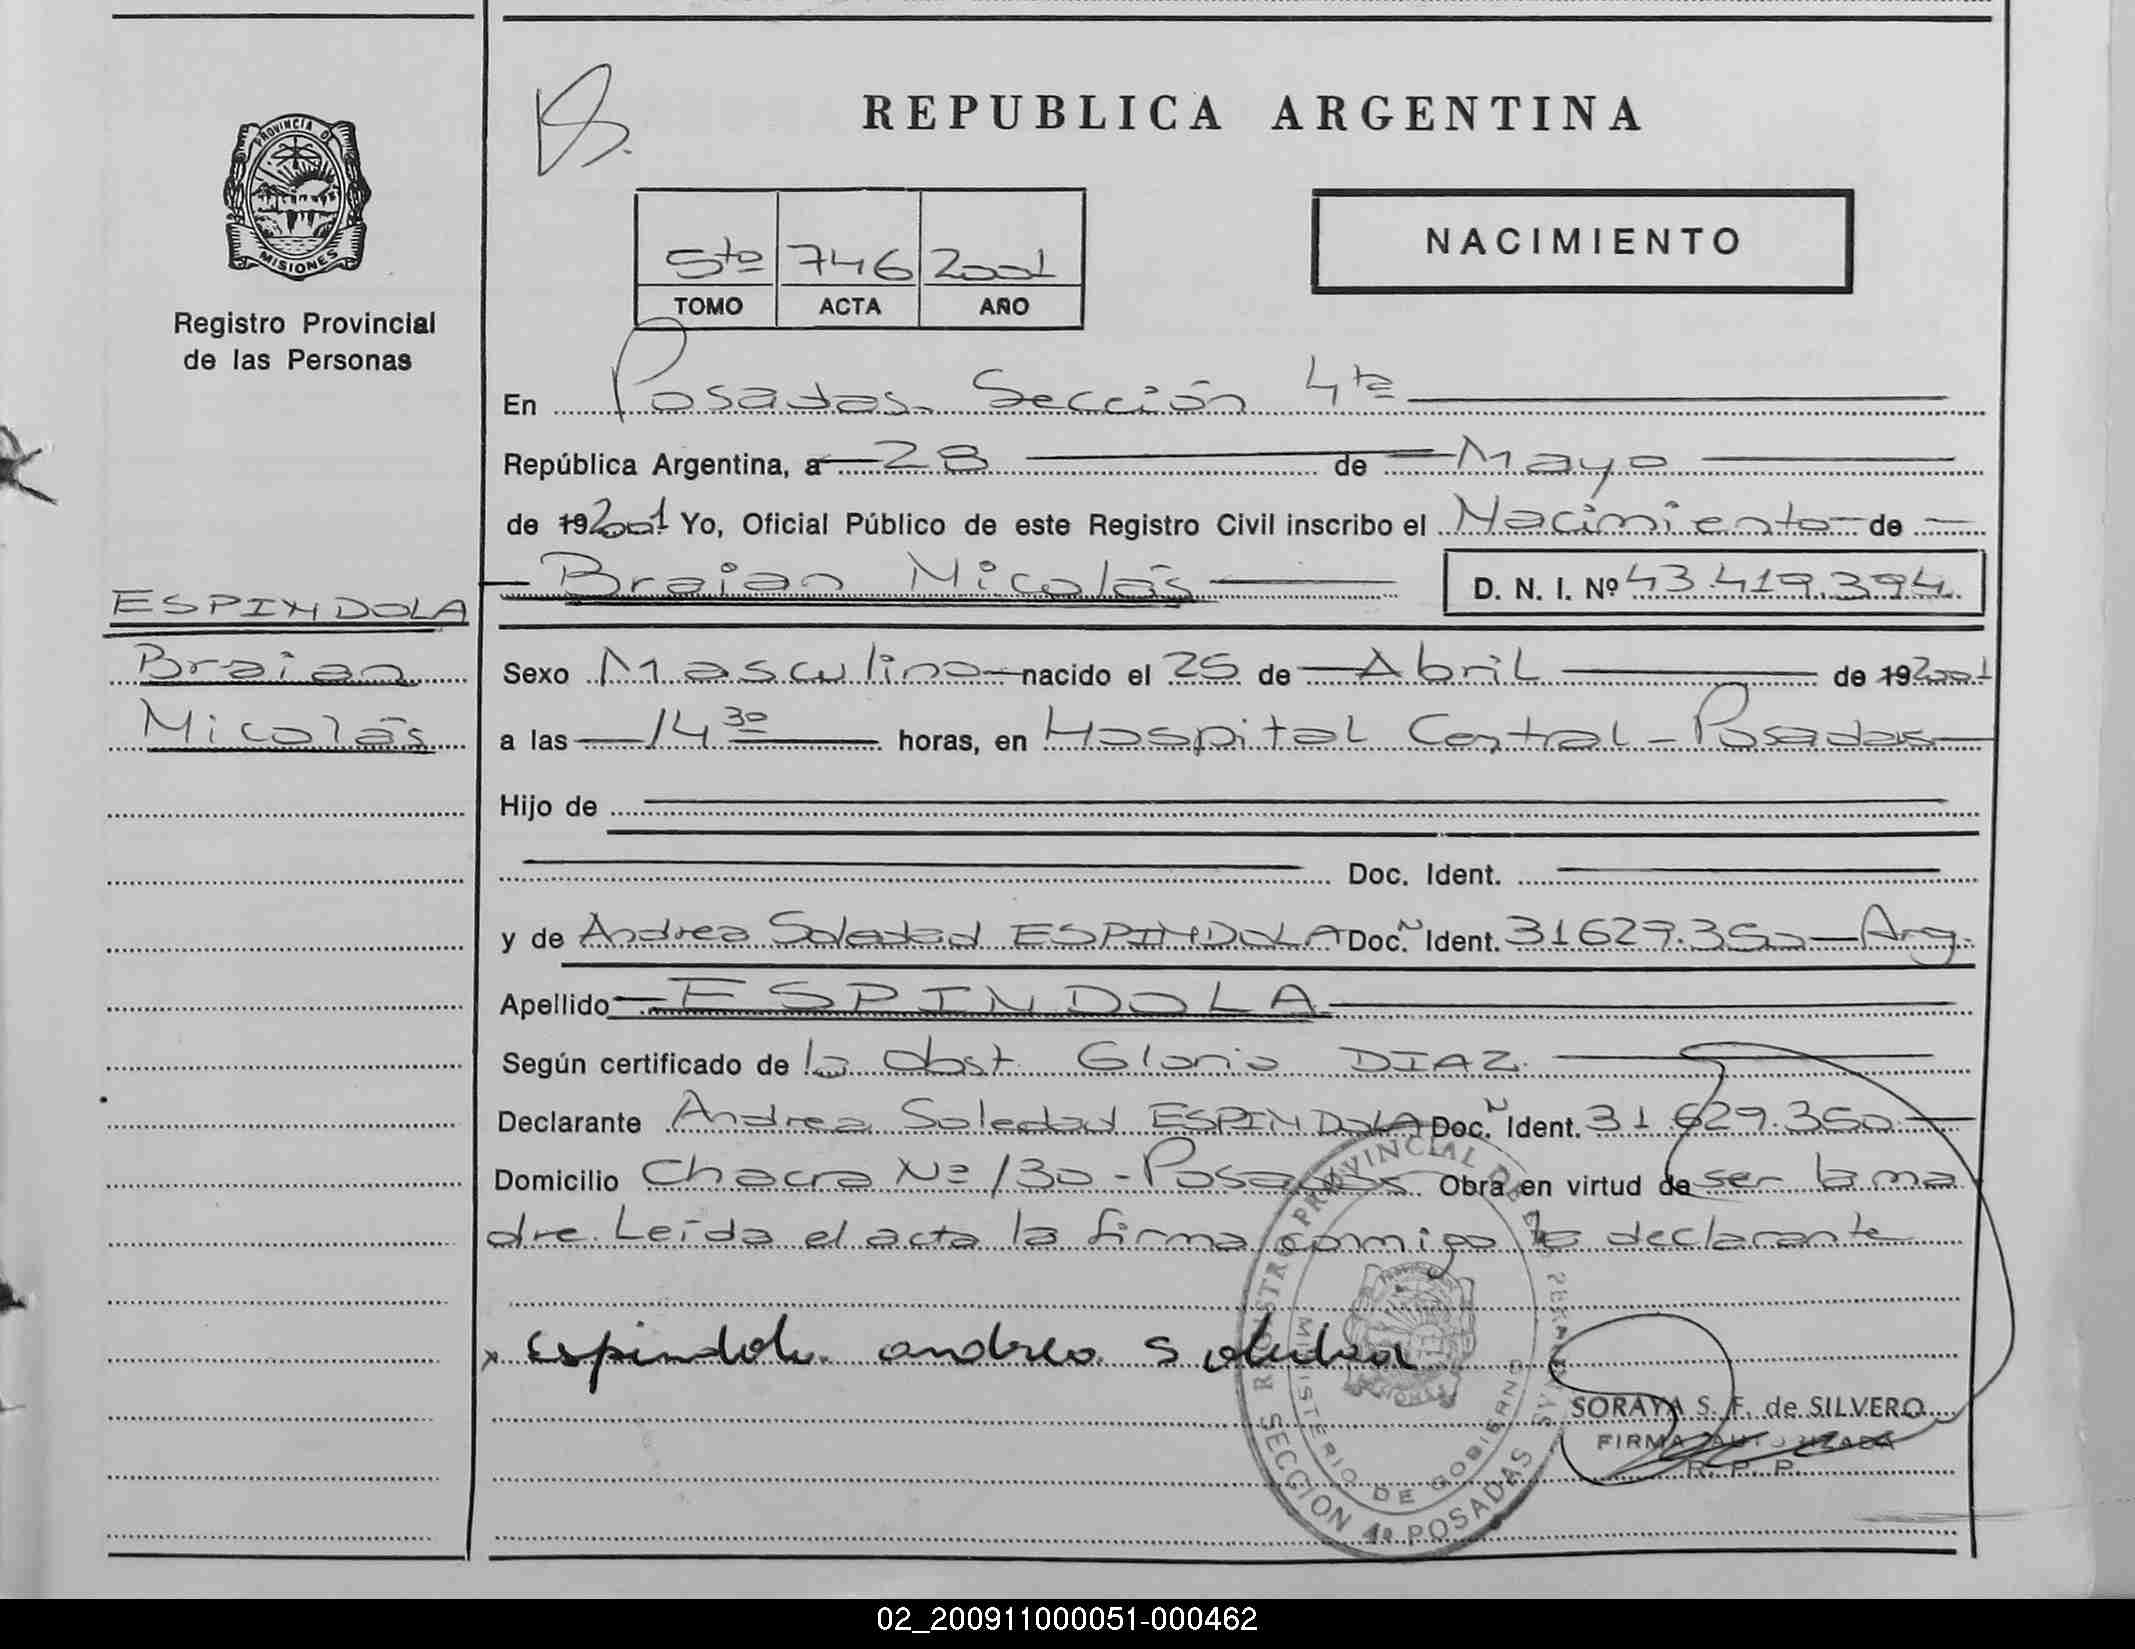 REPUBLICA ARGENTINA
PROVINCIA DE
MISIONES
Registro Provincial
de las Personas
5to 746 2001
TOMO ACTA AÑO
NACIMIENTO
En Posadas. Sección 4ta
República Argentina, a 28 de Mayo
de 192001 Yo, Oficial Público de este Registro Civil inscribo el Nacimiento de
Braian Nicolás D. N. I. Nº 43.419.394.
ESPINDOLA
Braian
Nicolás
Sexo Masculino nacido el 25 de Abril de 192001
a las 14 30 horas, en Hospital Central - Posadas
Hijo de
Doc. Ident.
y de Andrea Soledad ESPINDOLA Doc. N Ident. 31629.350 - Arg.
Apellido ESPINDOLA
Según certificado de la Obst. Gloria DIAZ.
Declarante Andrea Soledad ESPINDOLA Doc. N Ident. 31 629.350
Domicilio Chacra Nº 130 - Posadas. Obra en virtud de ser la ma
dre. Leída el acta la firma conmigo la declarante
x Espindola andrea soledad
REGISTRO PROVINCIAL DE LAS PERSONAS
MINISTERIO DE GOBIERNO
SECCION 4a POSADAS
SORAYA S. F. de SILVERO
FIRMA AUTORIZADA
R. P. P.
02_200911000051-000462